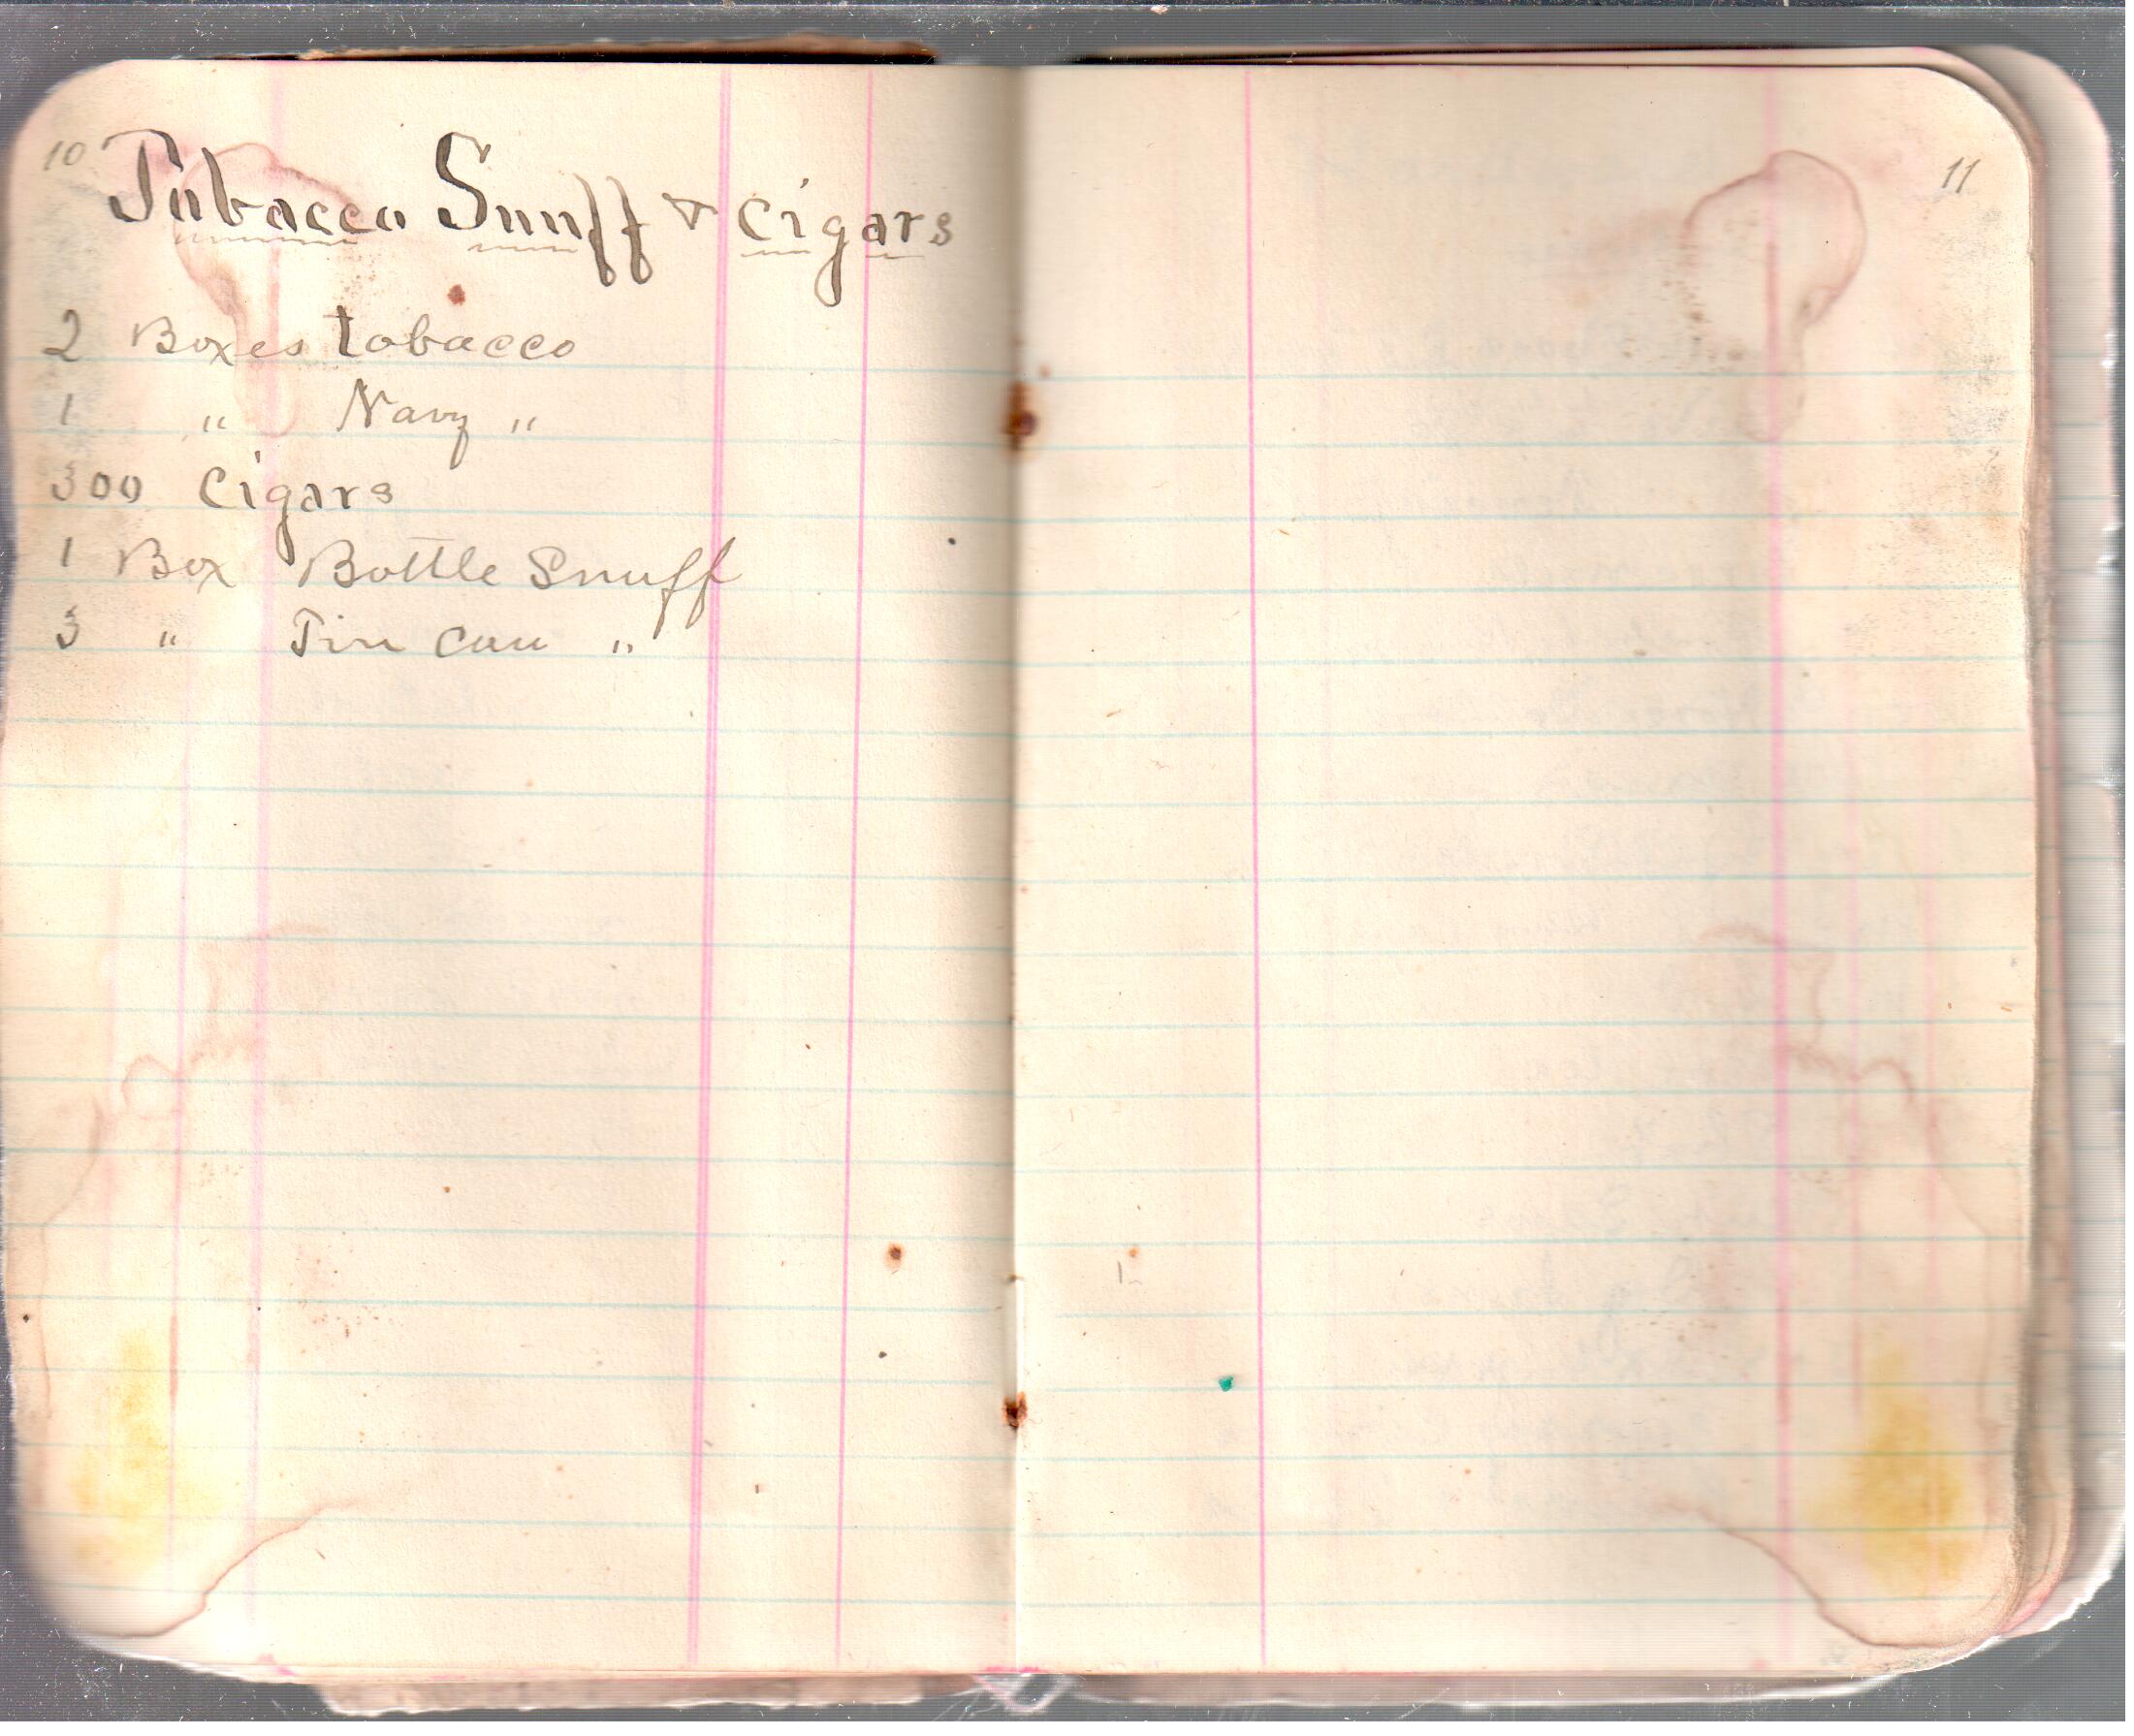 10
Tobacco Snuff & Cigars
2 Boxes tobacco
1 " Navy "
300 Cigars
1 Box Bottle Snuff
3 " Tin Can "
11